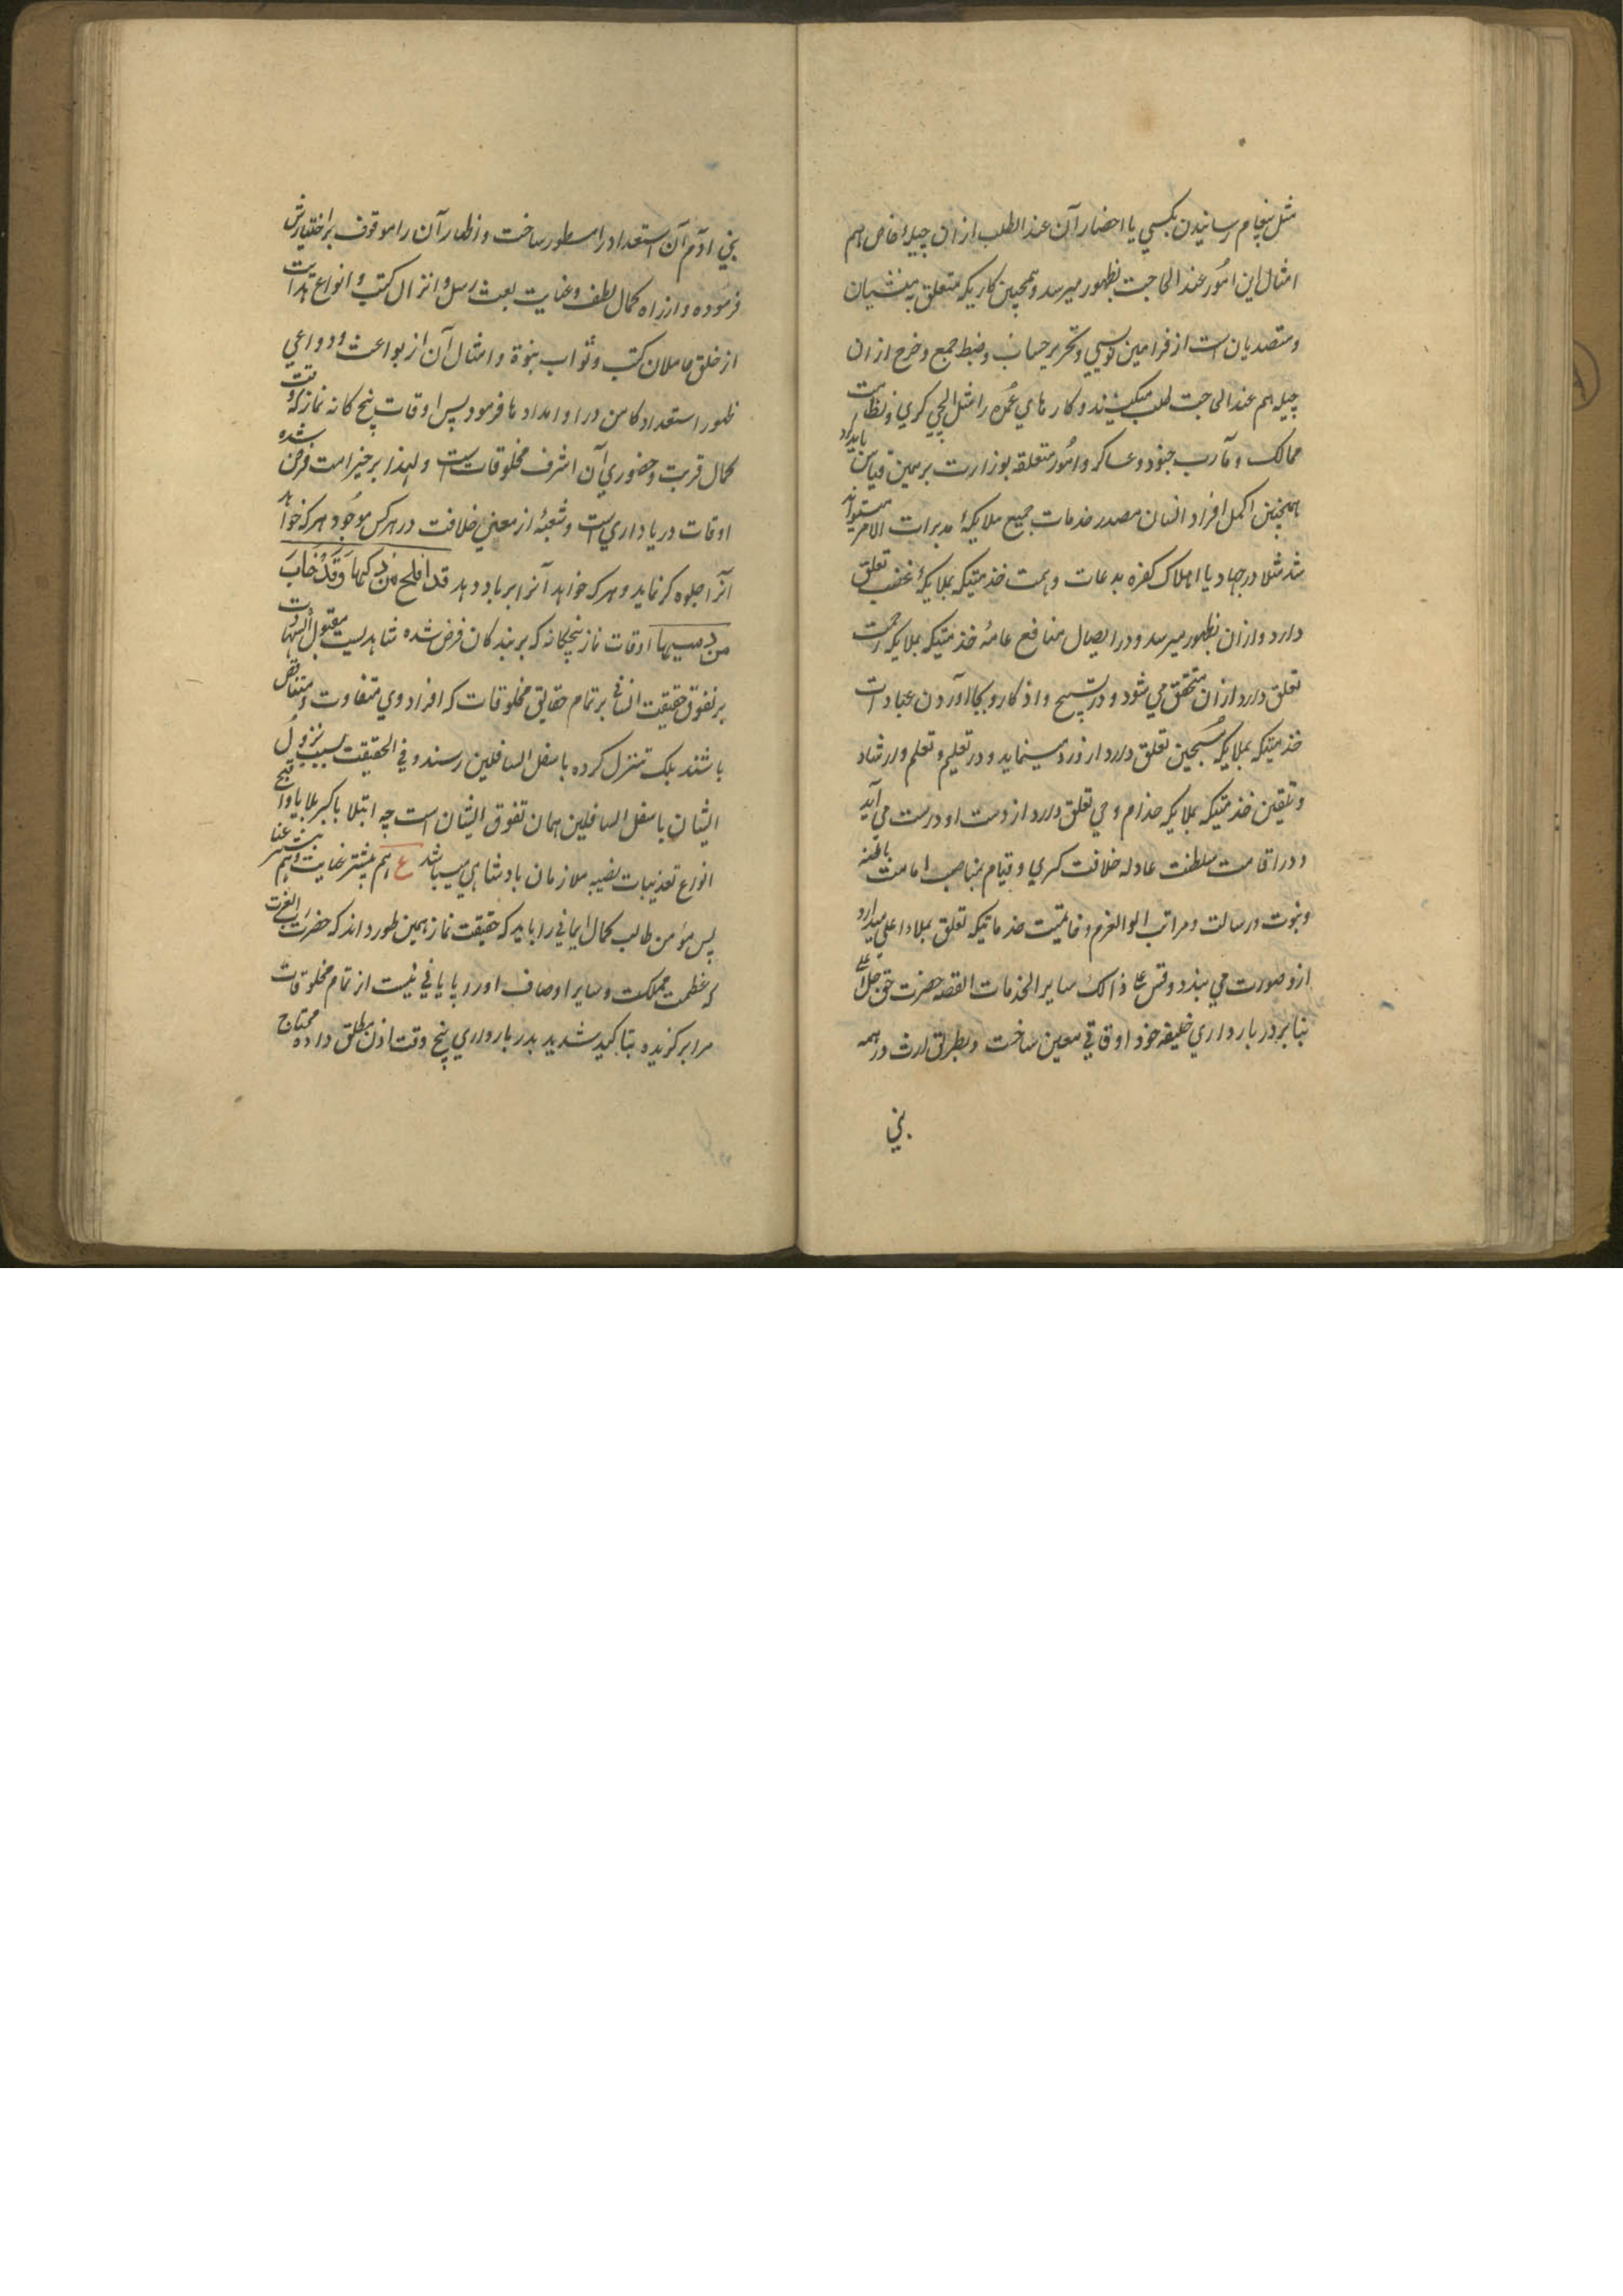 مثل پیغام رسانیدن بکسی یا احضار آن عند الطلب ازان چیلهٔ خاص هم
امثال این امُور عند الحاجت بظهور میرسد و همچنین کاریکه متعلق به منشیان
و متصدیان است از فرامین نویسی و تحریر حساب و ضبط جمع و خرج ازان
چیله هم عند الحاجت طلب میکنند و کارهای عمده را مثل ایلچی گری و نظامت
ممالک و مآرب جنود و عساکر و امُور متعلقه بوزارت برهمین قیاس باید کرد
همچنین اکمل افراد انسان مصدر خدمات جمیع ملایکهٔ مدبرات الامر میتواند
شد مثلا در جهاد یا اهلاک کفره بدعات و همت خدمتیکه بملایکهٔ غضب تعلق
دارد وازان بظهور میرسد و در ایصال منافع عامهٔ خدمتیکه بملایکه رحمت
تعلق دارد ازان متحقق می شود و در تسبیح و اذکار و بجا آوردن عبادات
خدمتیکه بملایکه مُسبحین تعلق دارد ازو رد مینماید و در تعلیم و تعلم و ارشاد
و تلقین خدمتیکه بملایکه خدام وحی تعلق دارد از دست او درست می آید
و در اقامت سلطنت عادله خلافت کبری و قیام بمناصب امامت باطنه
و نبوت و رسالت و مراتب الوالعزم و خاتمیت خدماتیکه تعلق بملاء اعلی میدارد
ازو صورت می بندد و قس علی ذالک سایر الخدمات القصه حضرت حق جل و علا
بنابر دربار داری خلیفه خود اوقاتی معین ساخت و بطریق ارث در همه
بنی
بنی آدم آن استعداد را مسطور ساخت و اظهار آن را موقوف بر اختیارش
فرموده و از راه کمال لطف و عنایت بعث رسل و انزال کتب و انواع هدایت
از خلق حاملان کتب و نواب نبوة و امثال آن از بواعث و دواعی
ظهور استعداد کامن در او امدادها فرمود پس اوقات پنج گانه نماز که وقت
کمال قربت و حضوری آن اشرف مخلوقات است و لهذا بر خیر امت فرض شده
اوقات دربار داری است و شعبهٔ از معنی خلافت در هرکس موجُود هرکه خواهد
آنرا جلوه گر نماید و هرکه خواهد آنرا برباد دهد قد افلح من زکیها وَقَدْ خَابَ
من دسیها اوقات نماز پنجگانه که بر بندگان فرض شده شاهدیست مقبول الشهادت
بر تفوق حقیقت انسانی بر تمام حقایق مخلوقات که افراد وی متفاوت و متناقض
باشند بلکه تنزل کرده باسفل السافلین رسند و فی الحقیقت بسبب نزول
ایشان باسفل السافلین همان تفوق ایشان است چه ابتلا باکبر بلایا و اقبح
انواع تعذیبات نصیبه ملازمان بادشاهی میباشد ع هم بیشتر عنایت و هم بیشتر عنا
پس مؤمن طالب کمال ایمانی را باید که حقیقت نماز همین طور داند که حضرت رب العزت
که عظمت مملکت و سایر اوصاف او را پایانی نیست از تمام مخلوقات
مرا برگزیده بتاکید شدید بدربار داری پنج وقت اذن مطلق داده محتاج